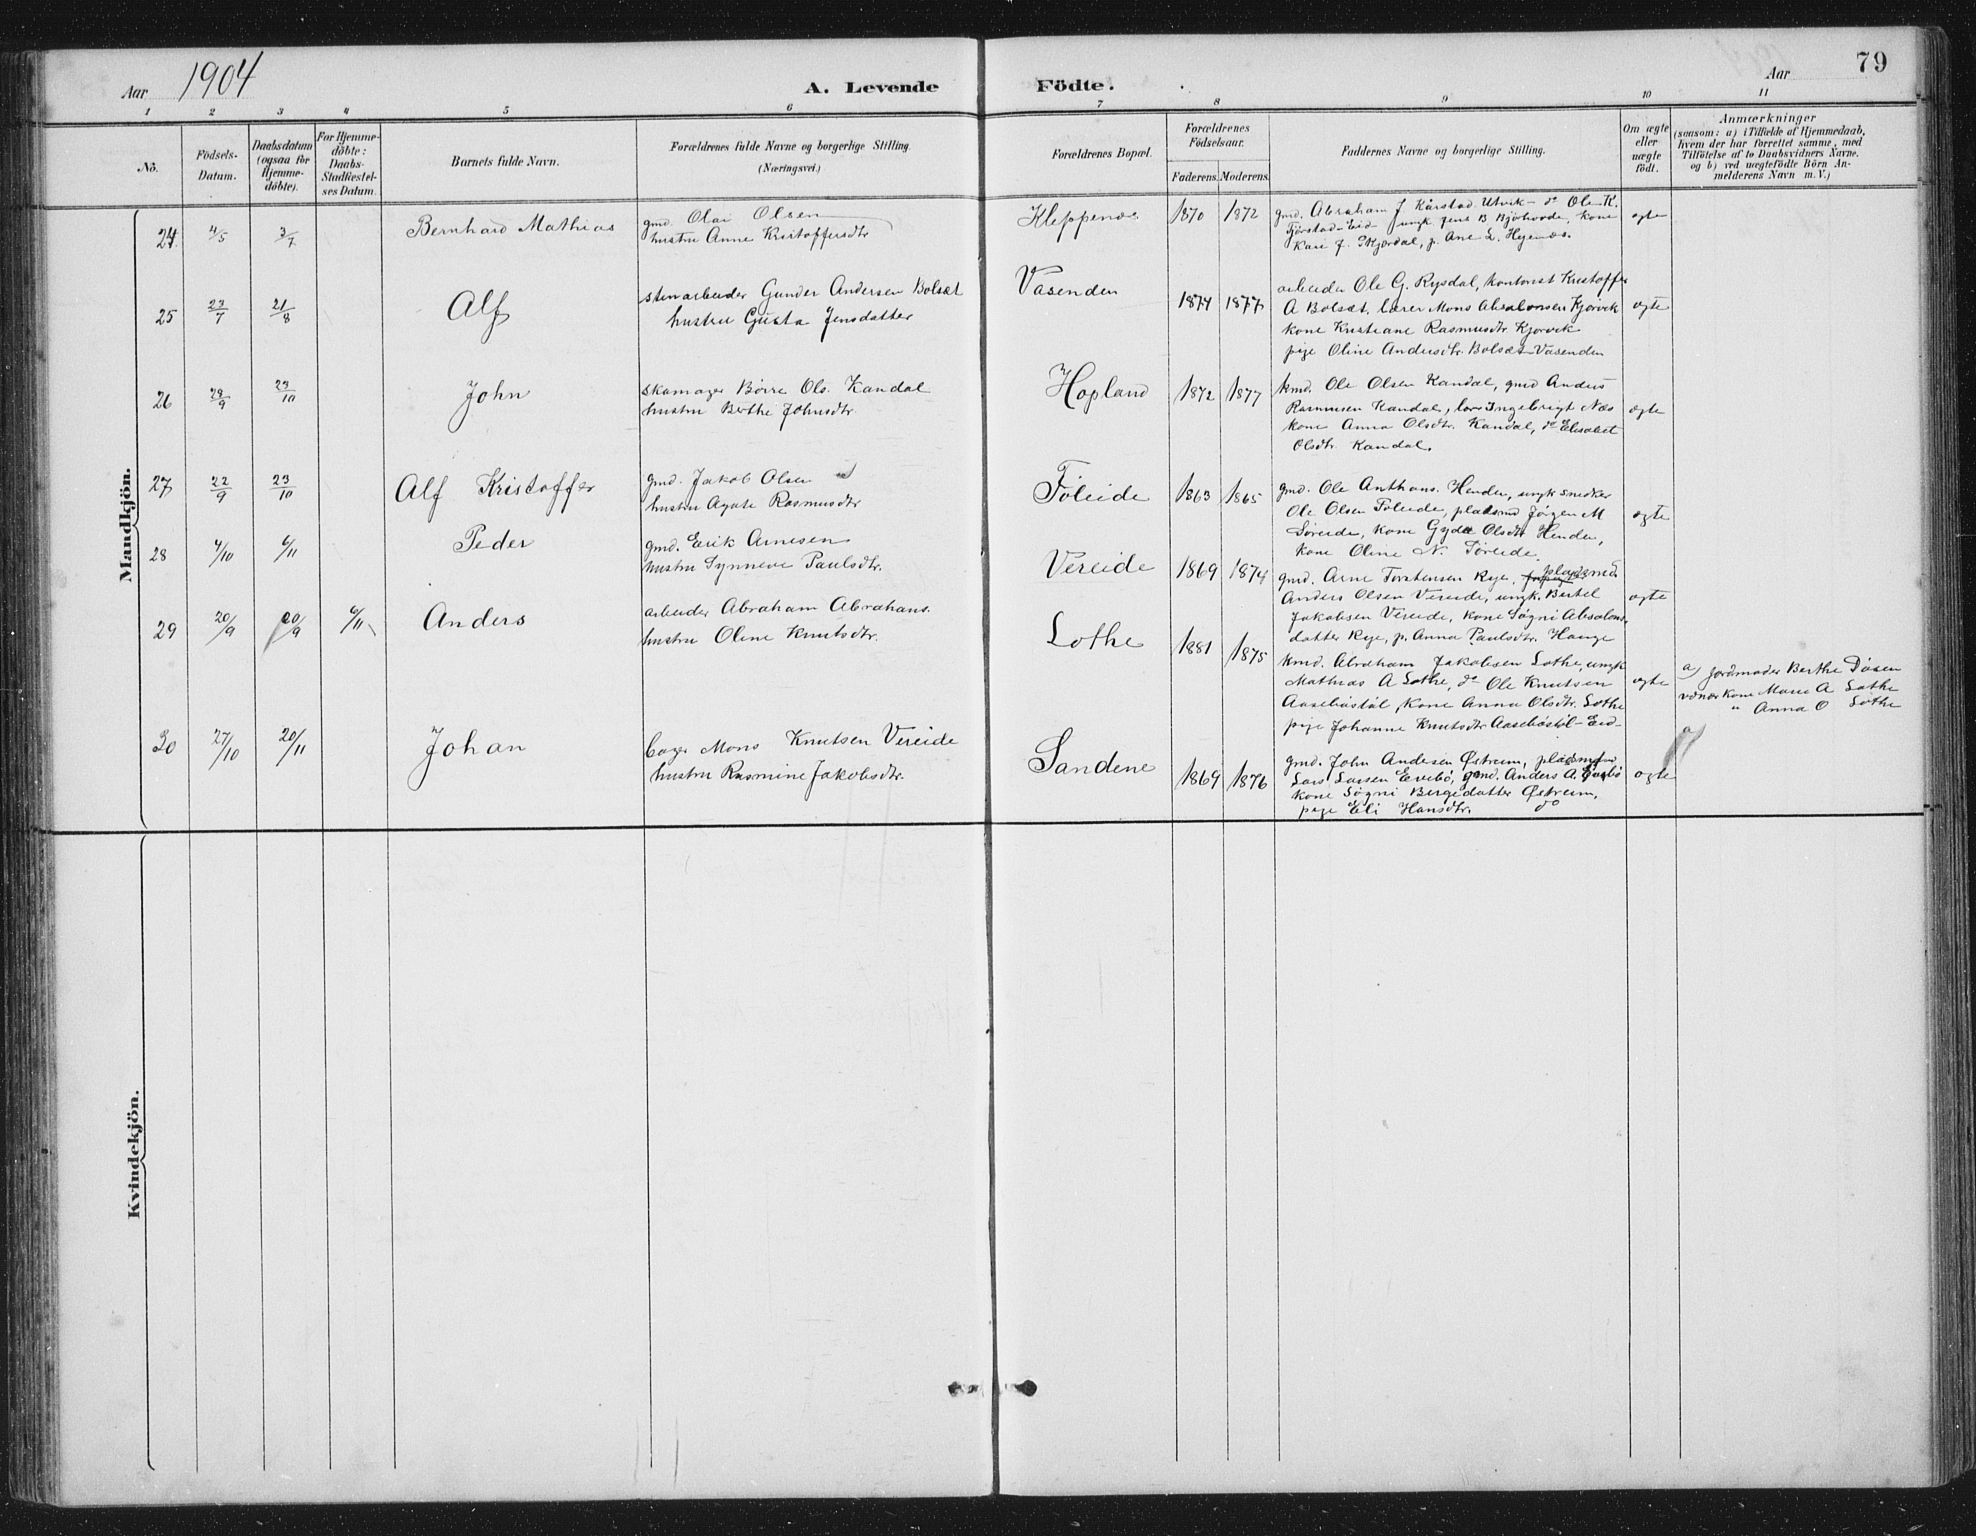 79
Aar 1904
A. Levende Födte.
Aar
1 2 3 4 5 6 7 8 9 10 11
No.
Födsels-
Datum.
Daabsdatum
(ogsaa for
Hjemme-
döbte).
For Hjemme-
döbte:
Daabs-
Stadfæstel-
ses Datum.
Barnets fulde Navn.
Forældrenes fulde Navne og borgerlige Stilling.
(Næringsvei.)
Forældrenes Bopæl.
Forældrenes
Födselsaar.
Faderens. Moderens.
Faddernes Navne og borgerlige Stilling.
Om ægte
eller
uægte
födt.
Anmærkninger
(saasom: a) i Tilfælde af Hjemmedaab,
hvem der har forrettet samme, med
Tilföielse af to Daabsvidners Navne.
og b) ved uægtefödte Börn An-
melderens Navn m.V.)
Mandkjön.
24 4/5 3/7 Bernhard Mathias
gmd. Olai Olsen
hustru Anne Kristoffersdtr
Kleppenes 1870 1872
gmd. Abraham J Kårstad Utvik - do Ole K.
Tjörstad-Eid ungk Jens B Bjørhovde, kone
Kari J. Skjørdal, p. Ane L. Hyenæs.
ægte
25 23/7 21/8 Alf
stenarbeider Gunder Andersen Bolsæt
hustru Gusta Jensdatter
Vasenden 1874 1877
arbeider Ole G. Rysdal, kontorist Kristoffer
A Bolsæt, lærer Mons Absalonsen Kjørvik
kone Kristiane Rasmusdtr. Kjørvik
pige Oline Andersdtr. Bolsæt Vasenden
ægte
26 28/9 23/10 John
skomager Börre Ols. Kandal
hustru Berthe Johnsdtr.
Hopland 1872 1877
kmd. Ole Olsen Kandal, gmd Anders
Rasmusen Kandal, lærer Ingebrigt Næs
kone Anna Olsdtr. Kandal, do Elisabet
Olsdtr. Kandal.
ægte
27 22/9 23/10 Alf Kristoffer
gmd. Jakob Olsen
hustru Agate Rasmusdtr
Föleide 1863 1865
gmd. Ole Anthons. Henden, ungk snedker
Ole Olsen Föleide, pladsmd Jörgen M
Söreide, kone Gyda Olsdtr Henden,
kone Oline N. Söreide.
ægte
28 4/10 6/11 Peder
gmd. Erik Arnesen
hustru Synneve Paulsdtr.
Vereide 1869 1874
gmd. Arne Torstensen Rye, pladsmd
Anders Olsen Vereide, ungk. Bertel
Jakobsen Vereide, kone Sögni Absalons
datter Rye, p. Anna Paulsdtr. Hauge
ægte
29 20/9 20/9 6/11 Anders
arbeider Abraham Abrahams.
hustru Oline Knutsdtr.
Lothe 1881 1875
kmd. Abraham Jakobsen Lothe, ungk
Mathias A Lothe, do Ole Knutsen
Aaseböstöl, kone Anna Olsdtr. Lothe
pige Johanne Knutsdtr Aaseböstöl - Eid -
ægte
a) Jordmoder Berthe Dösen
kone Marie A Lothe
" Anna O Lothe
30 27/10 20/11 Johan
bager Mons Knutsen Vereide
hustru Rasmine Jakobsdtr.
Sandene 1869 1876
gmd. John Andersen Østreim, pladsmand
Lars Larsen Evebö, gmd. Anders A. Evebö
kone Sögni Bergedatter Østreim,
pige Eli Hansdtr. do
ægte
a
Kvindekjön.